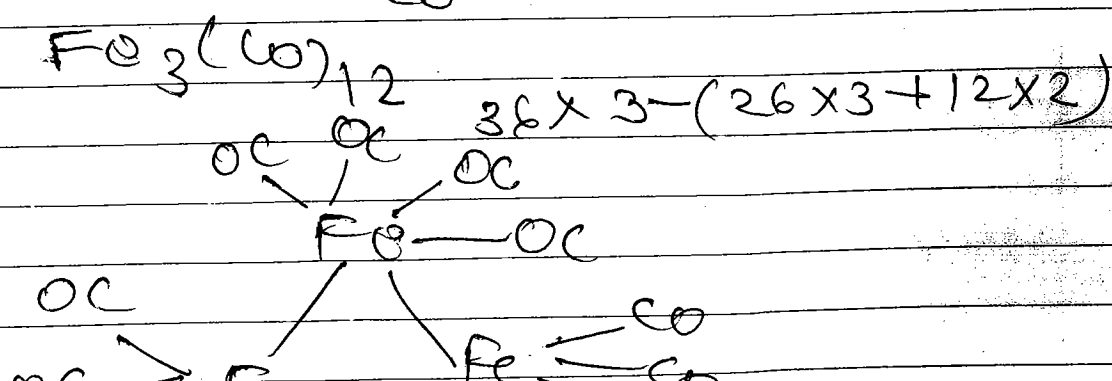 Fe3(CO)12
36×3-(26×3+12×2)
OC OC OC
Fe-OC
OC
Fe CO